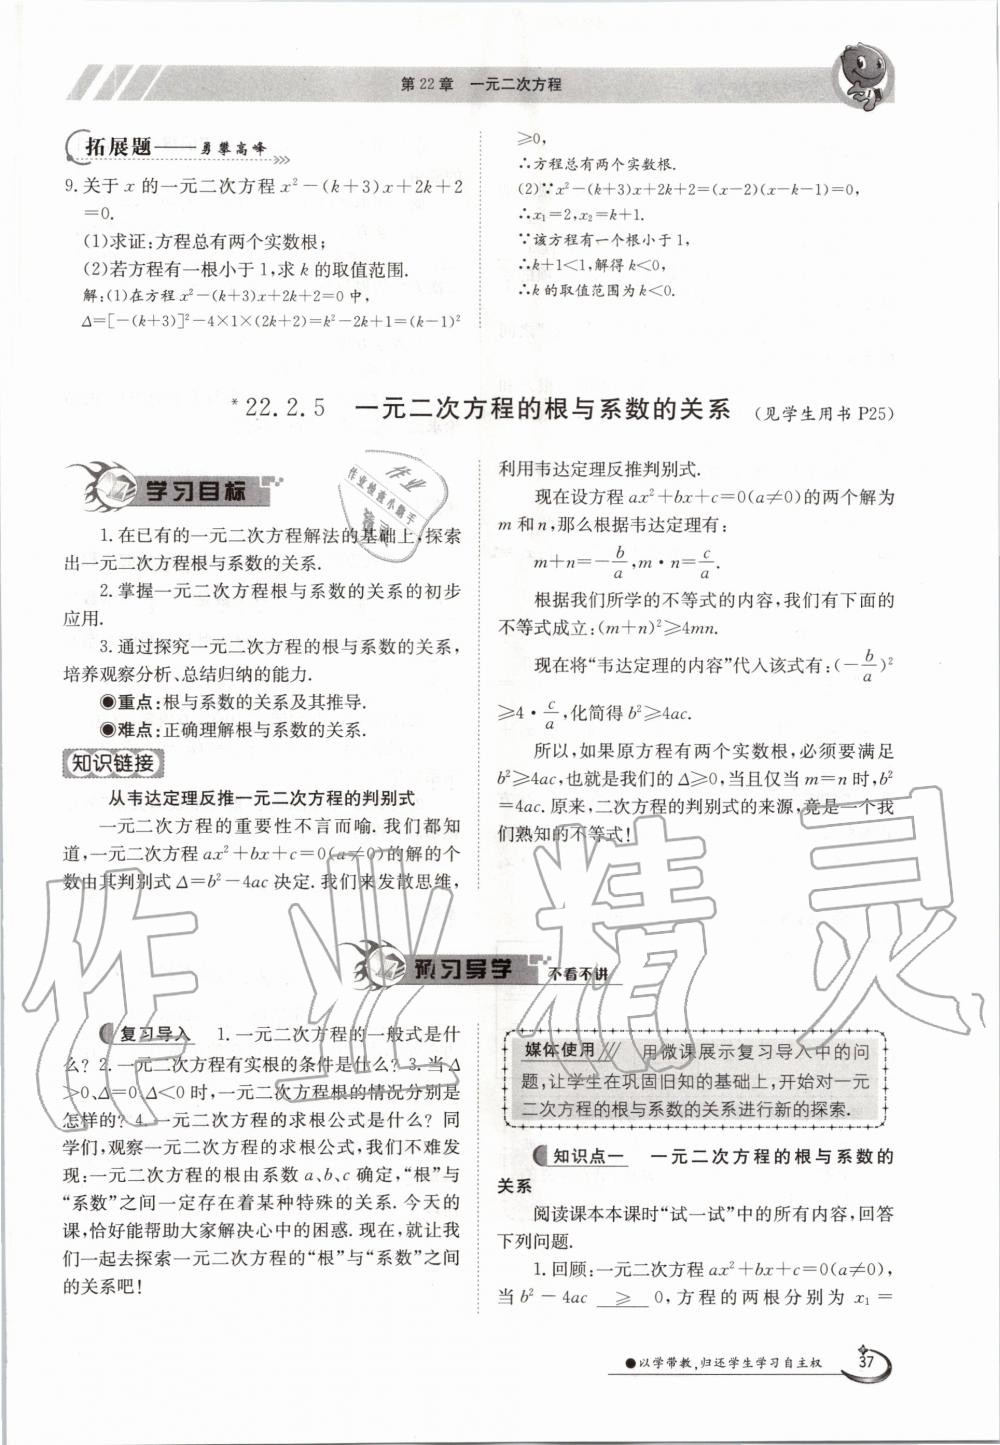 第22章 一元二次方程
拓展题——勇攀高峰
9.关于x的一元二次方程x²-(k+3)x+2k+2
=0.
(1)求证:方程总有两个实数根;
(2)若方程有一根小于1,求k的取值范围.
解:(1)在方程x²-(k+3)x+2k+2=0中,
Δ=[-(k+3)]²-4×1×(2k+2)=k²-2k+1=(k-1)²
≥0,
∴方程总有两个实数根.
(2)∵x²-(k+3)x+2k+2=(x-2)(x-k-1)=0,
∴x₁=2,x₂=k+1.
∵该方程有一个根小于1,
∴k+1<1,解得k<0,
∴k的取值范围为k<0.
*22.2.5 一元二次方程的根与系数的关系 (见学生用书P25)
学习目标
1.在已有的一元二次方程解法的基础上,探索
出一元二次方程根与系数的关系.
2.掌握一元二次方程根与系数的关系的初步
应用.
3.通过探究一元二次方程的根与系数的关系,
培养观察分析、总结归纳的能力.
●重点:根与系数的关系及其推导.
●难点:正确理解根与系数的关系.
知识链接
从韦达定理反推一元二次方程的判别式
一元二次方程的重要性不言而喻.我们都知
道,一元二次方程ax²+bx+c=0(a≠0)的解的个
数由其判别式Δ=b²-4ac决定.我们来发散思维,
利用韦达定理反推判别式.
现在设方程ax²+bx+c=0(a≠0)的两个解为
m和n,那么根据韦达定理有:
m+n=-b/a,m·n=c/a.
根据我们所学的不等式的内容,我们有下面的
不等式成立:(m+n)²≥4mn.
现在将“韦达定理的内容”代入该式有:(-b/a)²
≥4·c/a,化简得b²≥4ac.
所以,如果原方程有两个实数根,必须要满足
b²≥4ac,也就是我们的Δ≥0,当且仅当m=n时,b²
=4ac.原来,二次方程的判别式的来源,竟是一个我
们熟知的不等式!
预习导学 不看不讲
复习导入 1.一元二次方程的一般式是什
么?2.一元二次方程有实根的条件是什么?3.当Δ
>0、Δ=0、Δ<0时,一元二次方程根的情况分别是
怎样的?4.一元二次方程的求根公式是什么?同
学们,观察一元二次方程的求根公式,我们不难发
现:一元二次方程的根由系数a、b、c确定,“根”与
“系数”之间一定存在着某种特殊的关系.今天的
课,恰好能帮助大家解决心中的困惑.现在,就让我
们一起去探索一元二次方程的“根”与“系数”之间
的关系吧!
媒体使用 用微课展示复习导入中的问
题,让学生在巩固旧知的基础上,开始对一元
二次方程的根与系数的关系进行新的探索.
知识点一 一元二次方程的根与系数的
关系
阅读课本本课时“试一试”中的所有内容,回答
下列问题.
1.回顾:一元二次方程ax²+bx+c=0(a≠0),
当b²-4ac ≥ 0,方程的两根分别为x₁=
●以学带教,归还学生学习自主权
37
作业
作业检查小助手
精灵
作业精灵